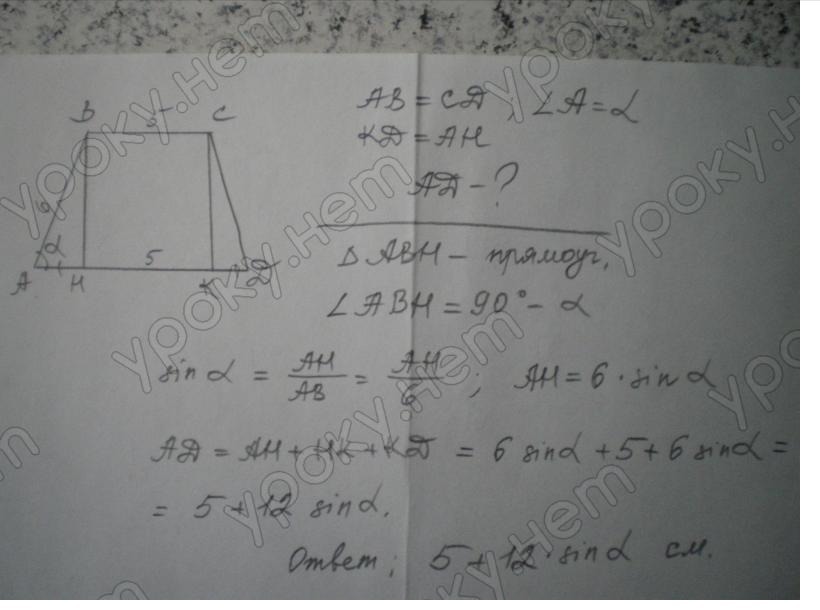 B 5 C
6
α
A H 5 K D
AB = CD ; ∠A = α
KD = AH
AD - ?
Δ ABH - прямоуг,
∠ABH = 90° - α
sin α = AH/AB = AH/6 ; AH = 6 · sin α
AD = AH + HK + KD = 6 sin α + 5 + 6 sin α =
= 5 + 12 sin α.
Ответ: 5 + 12 · sin α см.
уроку.нет
уроку.нет
уроку.нет
уроку.нет
уроку.нет
уроку.нет